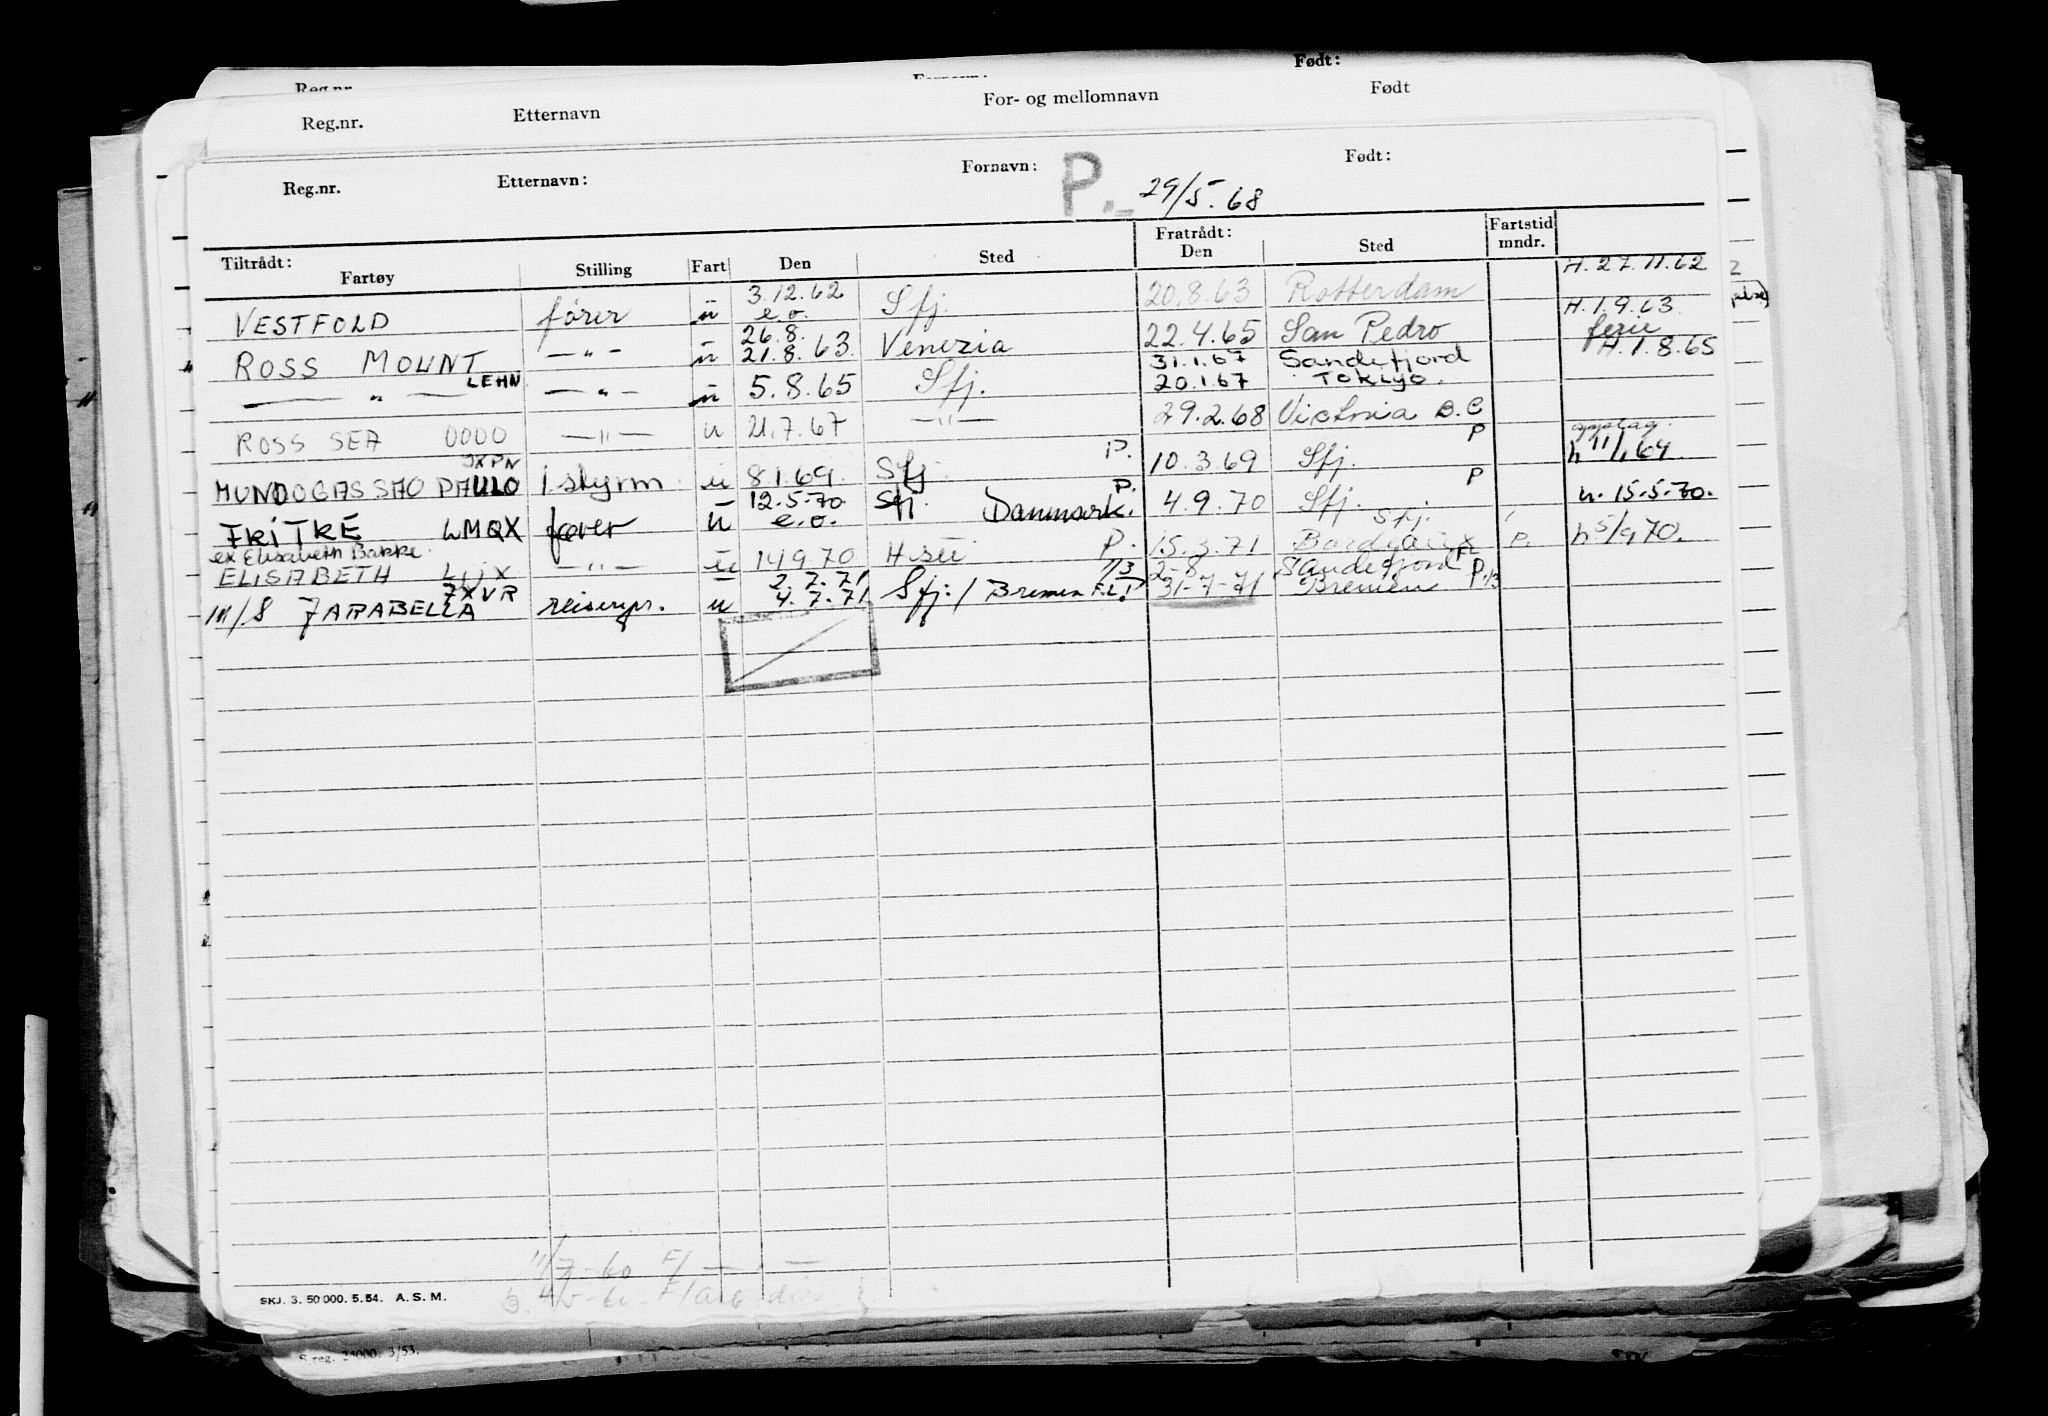 Født:
Reg.nr.
Reg.nr. Etternavn For- og mellomnavn Født
Reg.nr. Etternavn: Fornavn: Født:
P. 29/5.68
Tiltrådt: Fratrådt: Fartstid
Fartøy Stilling Fart Den Sted Den Sted mndr.
H. 27.11.62
VESTFOLD fører u 3.12.62 e.o. Sfj. 20.8.63 Rotterdam
H. 1.9.63
ROSS MOUNT — " — u 26.8. 21.8.63 Venezia 22.4.65 San Pedro ferie
LEHN 31.1.67 Sandefjord H. 1.8.65
— " — — " — u 5.8.65 Sfj. 20.1.67 Tokiyo.
ROSS SEA OOOO — " — u 21.7.67 — " — 29.2.68 Victoria B.C
JXPN P. P opplag.
MUNDOGAS SAO PAULO 1 styrm u 8.1.69. Sfj 10.3.69 Sfj. h 11/1.69.
P. P
FRITRE LMQX fører u 12.5.70 e.o. Sfj Danmark. 4.9.70 Sfj. h. 15.5.70.
ex Elisabeth Bakke. Sfj.
ELISABETH — " — u 14970 P. 15.3.71 P. h 5/9 70.
JXVR 2.7.71 2-8 Sandefjord
M/S JARABELLA u 4.7.71 Sfj: / Bremen 31-7-71 Bremen P.
11/7-60
SKJ. 3. 50 000. 5.54. A. S. M.
S.reg. 3/53.